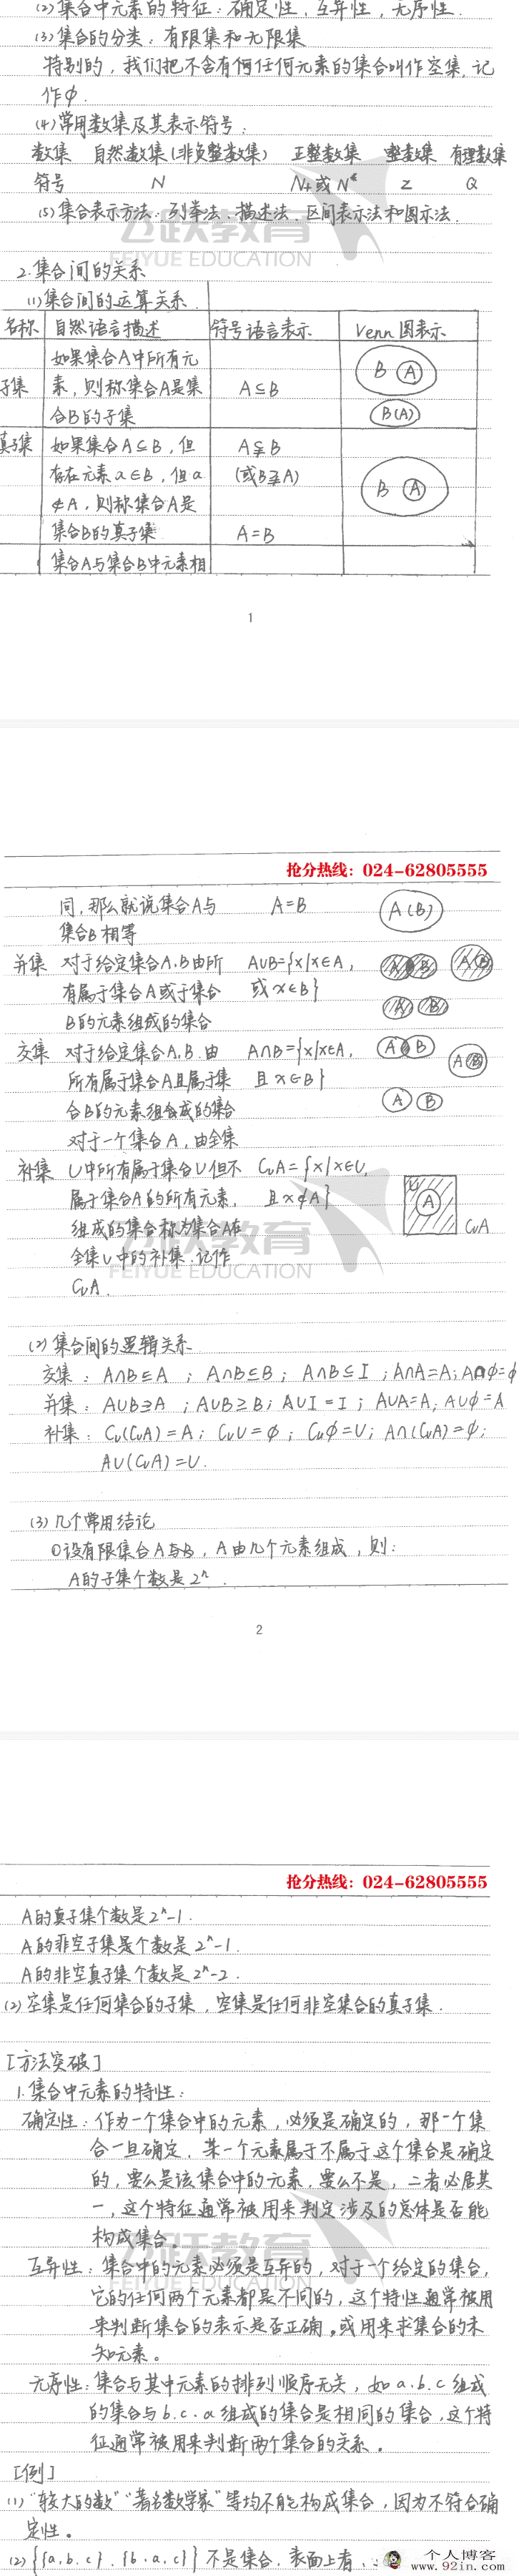 (2)集合中元素的特征:确定性,互异性,无序性.
(3)集合的分类:有限集和无限集
特别的,我们把不含有何任何元素的集合叫作空集,记
作φ.
(4)常用数集及其表示符号:
数集 自然数集(非负整数集) 正整数集 整数集 有理数集
符号 N N+或N* Z Q
(5)集合表示方法:列举法、描述法、区间表示法和图示法.
飞跃教育
FEIYUE EDUCATION
2.集合间的关系
(1)集合间的运算关系.
名称 自然语言描述 符号语言表示 Venn图表示
如果集合A中所有元 B A
子集 素,则称集合A是集 A⊆B
合B的子集 B(A)
真子集 如果集合A⊆B,但 A⫋B
存在元素a∈B,但a (或B⫌A) B A
∉A,则称集合A是
集合B的真子集 A=B
集合A与集合B中元素相
1
抢分热线:024-62805555
同,那么就说集合A与 A=B A(B)
集合B相等
并集 对于给定集合A.B由所 A∪B={x|x∈A, A B A B
有属于集合A或于集合 或x∈B} A B
B的元素组成的集合
交集 对于给定集合A.B.由 A∩B={x|x∈A, A B
所有属于集合A且属于集 且x∈B} A B
合B的元素组合成的集合 A B
对于一个集合A,由全集
补集 U中所有属于集合U但不 CuA={x|x∈U, U
属于集合A的所有元素, 且x∉A} A
组成的集合称为集合A在 CuA
飞跃教育
全集U中的补集.记作
FEIYUE EDUCATION
CuA.
(2)集合间的逻辑关系
交集:A∩B⊆A ;A∩B⊆B;A∩B⊆I ;A∩A=A;A∩φ=φ
并集:A∪B⊇A ;A∪B⊇B;A∪I=I;A∪A=A;A∪φ=A
补集:Cu(CuA)=A;CuU=φ;Cuφ=U;A∩(CuA)=φ;
A∪(CuA)=U.
(3)几个常用结论
①设有限集合A与B,A由几个元素组成,则:
A的子集个数是2ⁿ.
2
抢分热线:024-62805555
A的真子集个数是2ⁿ-1.
A的非空子集是个数是2ⁿ-1.
A的非空真子集个数是2ⁿ-2.
(2)空集是任何集合的子集,空集是任何非空集合的真子集.
[方法突破]
1.集合中元素的特性:
确定性:作为一个集合中的元素,必须是确定的,那一个集
合一旦确定.某一个元素属于不属于这个集合是确定
的,要么是该集合中的元素,要么不是,二者必居其
一,这个特征通常被用来判定涉及的总体是否能
构成集合。
飞跃教育
互异性:集合中的元素必须是互异的,对于一个给定的集合,
它的任何两个元素都是不同的,这个特性通常被用
来判断集合的表示是否正确。或用来求集合的未
知元素。
无序性:集合与其中元素的排列顺序无关,如a.b.c组成
的集合与b.c.a组成的集合是相同的集合,这个特
征通常被用来判断两个集合的关系。
[例]
(1)"较大的数""著名数学家"等均不能构成集合,因为不符合确
定性。
(2){{a,b,c},{b,a,c}}不是集合,表面上看
个人博客
www.92in.com